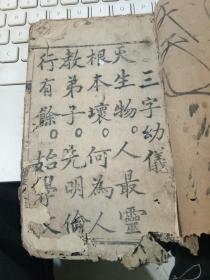 三字幼儀
天生物。人最靈
根本壞。何為人
教弟子。先明倫
行有餘。始學文